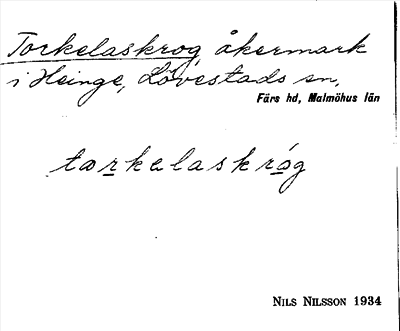 Torkelaskrog åkermark
i Heinge, Lövestads sn,
Färs hd, Malmöhus län
tɷrkelaskróg
NILS NILSSON 1934